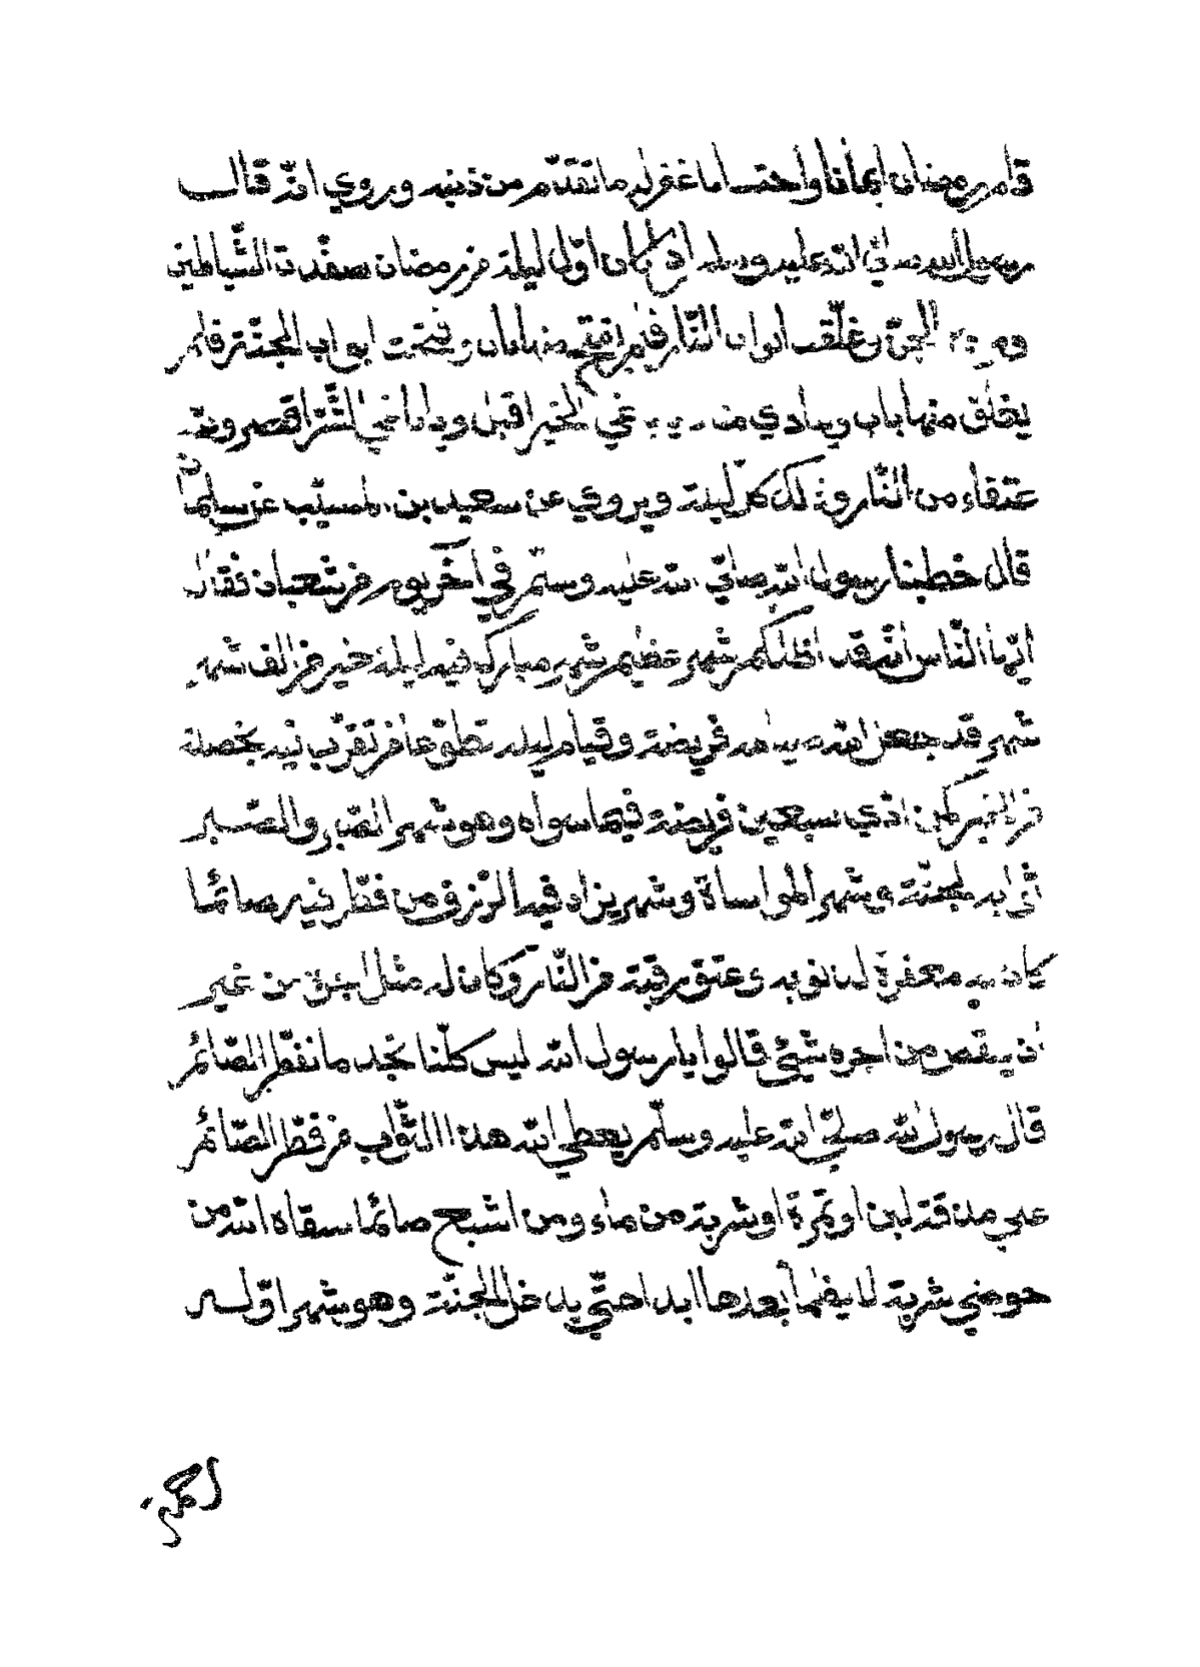 قام رمضان ايمانا واحتسابا غفر له ما تقدّم من ذنبه وروي انّه قال
رسول الله صلّي الله عليه وسلم اذا كان اوّل ليلة من رمضان صفّدت الشّياطين
الجنّ وغلّقت ابواب النّار فلم يفتح منها باب وفتحت ابواب الجنّة فلم
يغلق منها باب وينادي مناد يا باغي الخير اقبل ويا باغي الشّرّ اقصر ولله
عتقاء من النّار وذلك كلّ ليلة ويروي عن سعيد بن المسيّب عن سلمان
قال خطبنا رسول الله صلّي الله عليه وسلّم في آخر يوم من شعبان فقال
ايّها النّاس انّه قد اظلكم شهر عظيم شهر مبارك فيه ليلة خير من الف شهر
شهر قد جعل الله صيامه فريضة وقيام ليله تطوّعا من تقرّب فيه بخصلة
من الخير كمن ادّي سبعين فريضة فيما سواه وهو شهر الصّبر والصّبر
ثوابه الجنّة وشهر المواساة وشهر يزاد فيه الرّزق ومن فطّر فيه صائما
كان به مغفرة لذنوبه وعتق رقبة من النّار وكان له مثل اجره من غير
ان ينقص من اجره شيئ قالوا يا رسول الله ليس كلّنا نجد ما نفطّر الصّائم
قال رسول الله صلّيّ الله عليه وسلّم يعطي الله هذا الثّواب من فطّر الصّائم
علي مذقة لبن او تمرة او شربة من ماء ومن اشبع صائما سقاه الله من
حوضي شربة لا يظمأ بعدها ابدا حتّي يدخل الجنّة وهو شهر اوّله